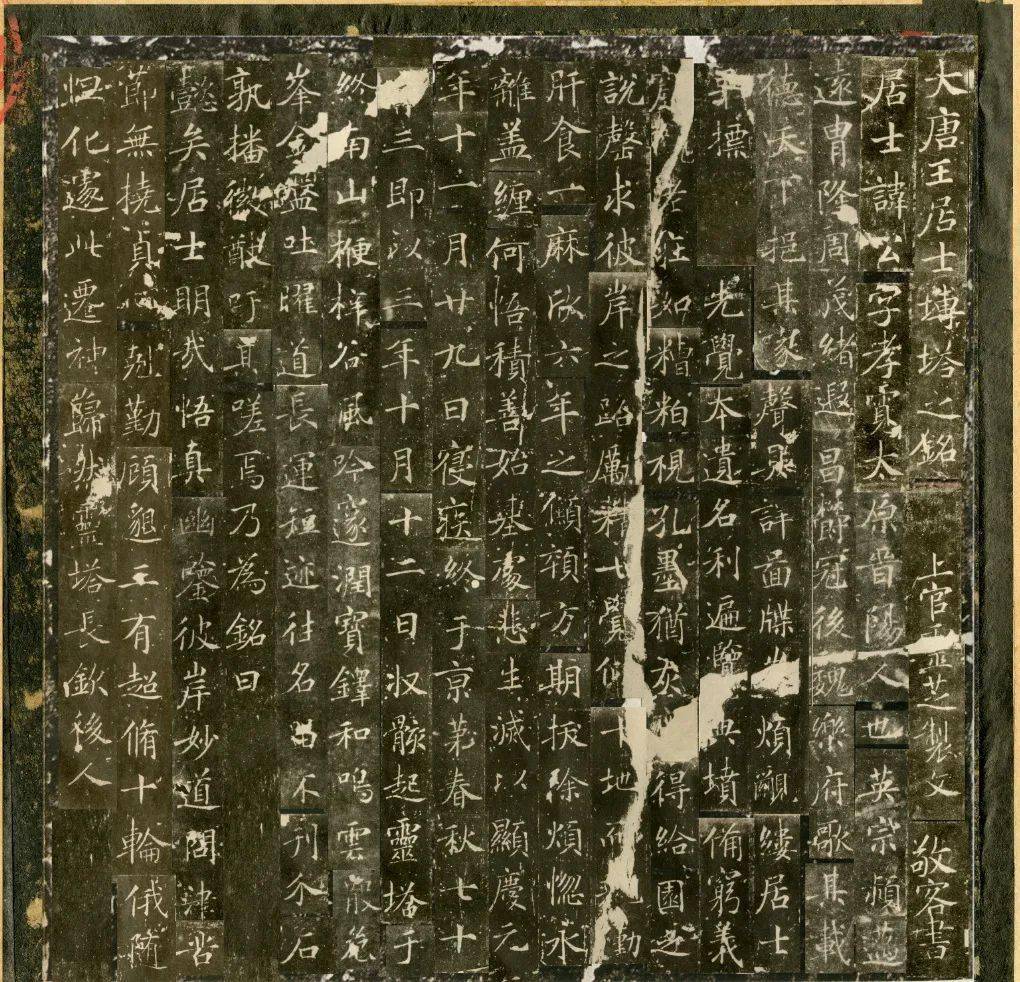 大唐王居士塼塔之銘 上官靈芝製文 敬客書
居士諱公字孝寬太原晉陽人也英宗頻藍
遠胄隆周茂緒遐昌欝冠後魏樂府歌其載
德天下挹其家聲具詳圖牒煩覼縷居士
摽先覺本遺名利遍覽典墳備窮義
老莊如糟粕視孔墨猶灰得給園之
說罄求彼岸之路勵精七覺仰十地而勤
肝食一麻欣六年之顇頓方期拔除煩惚永
離盖纏何悟積善始基處悲生滅以顯慶元
年十一月廿九日寢疾終于京第春秋七十
三即以三年十月十二日收骸起靈塔于
終南山楩梓谷風吟邃澗寶鐸和鳴雲散危
峯金盤吐曜道長運短迹往名留不刊介石
孰播徽猷吁其嗟焉乃為銘曰
懿矣居士明哉悟真幽鑒彼岸妙道問津
莭無撓貞心剋勤顧慙三有超脩十輪俄隨
怛化遽此遷神巋然靈塔長欽後人